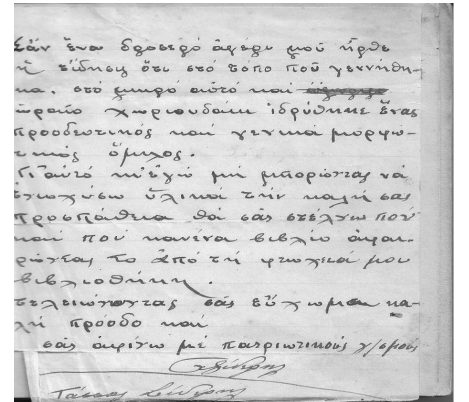 Σάν ἕνα δροσερό ἀγέρι μοῦ ἦρθε
ἡ εἴδησις ὅτι στό τόπο ποῦ γεννήθη-
κα, στό μικρό αὐτό καί
ὡραῖο χωριουδάκι ἱδρύθηκε ἕνας
προοδευτικός καί γενικά μορφω-
τικός ὅμιλος.
Γι αὐτό κι' ἐγώ μή μπορώντας νά
ἐνισχύσω ὑλικά τήν καλή σας
προσπάθεια θά σας στέλνω ποῦ
καί ποῦ κανένα βιβλίο ἀφαι-
ρώντας το ἀπό τή φτωχειά μου
βιβλιοθήκη.
τελειώνοντας σᾶς εὔχωμαι κα-
λή πρόοδο καί
σᾶς ἀφίνω μέ πατριωτικούς χ/σμούς
Τάσσος